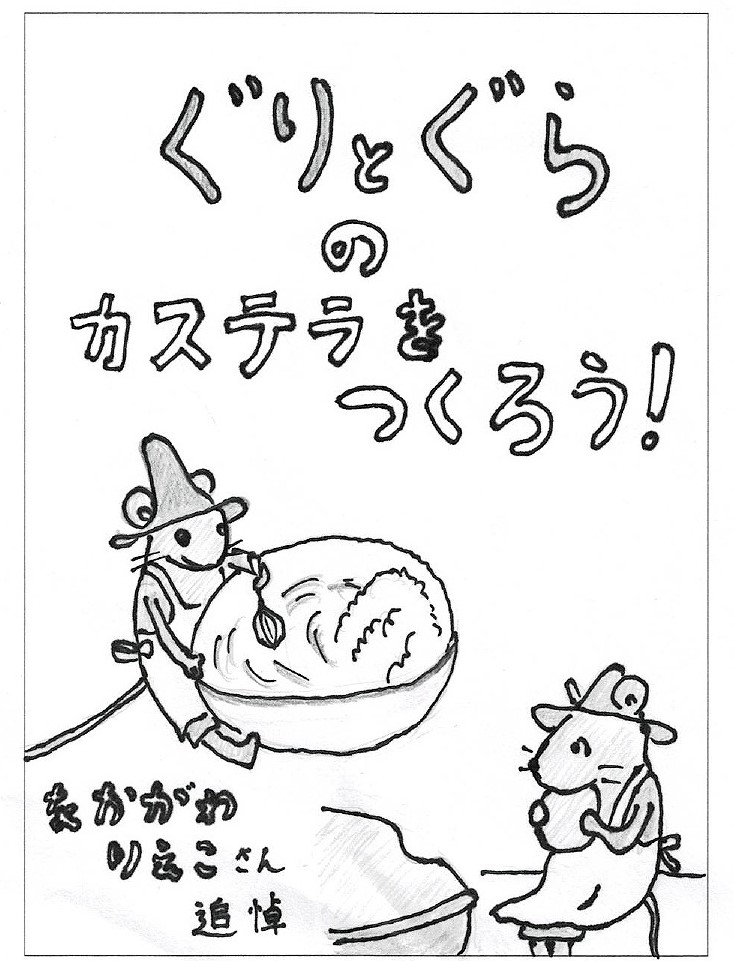 ぐりとぐら
の
カステラを
つくろう!
なかがわ
りえこさん
追悼